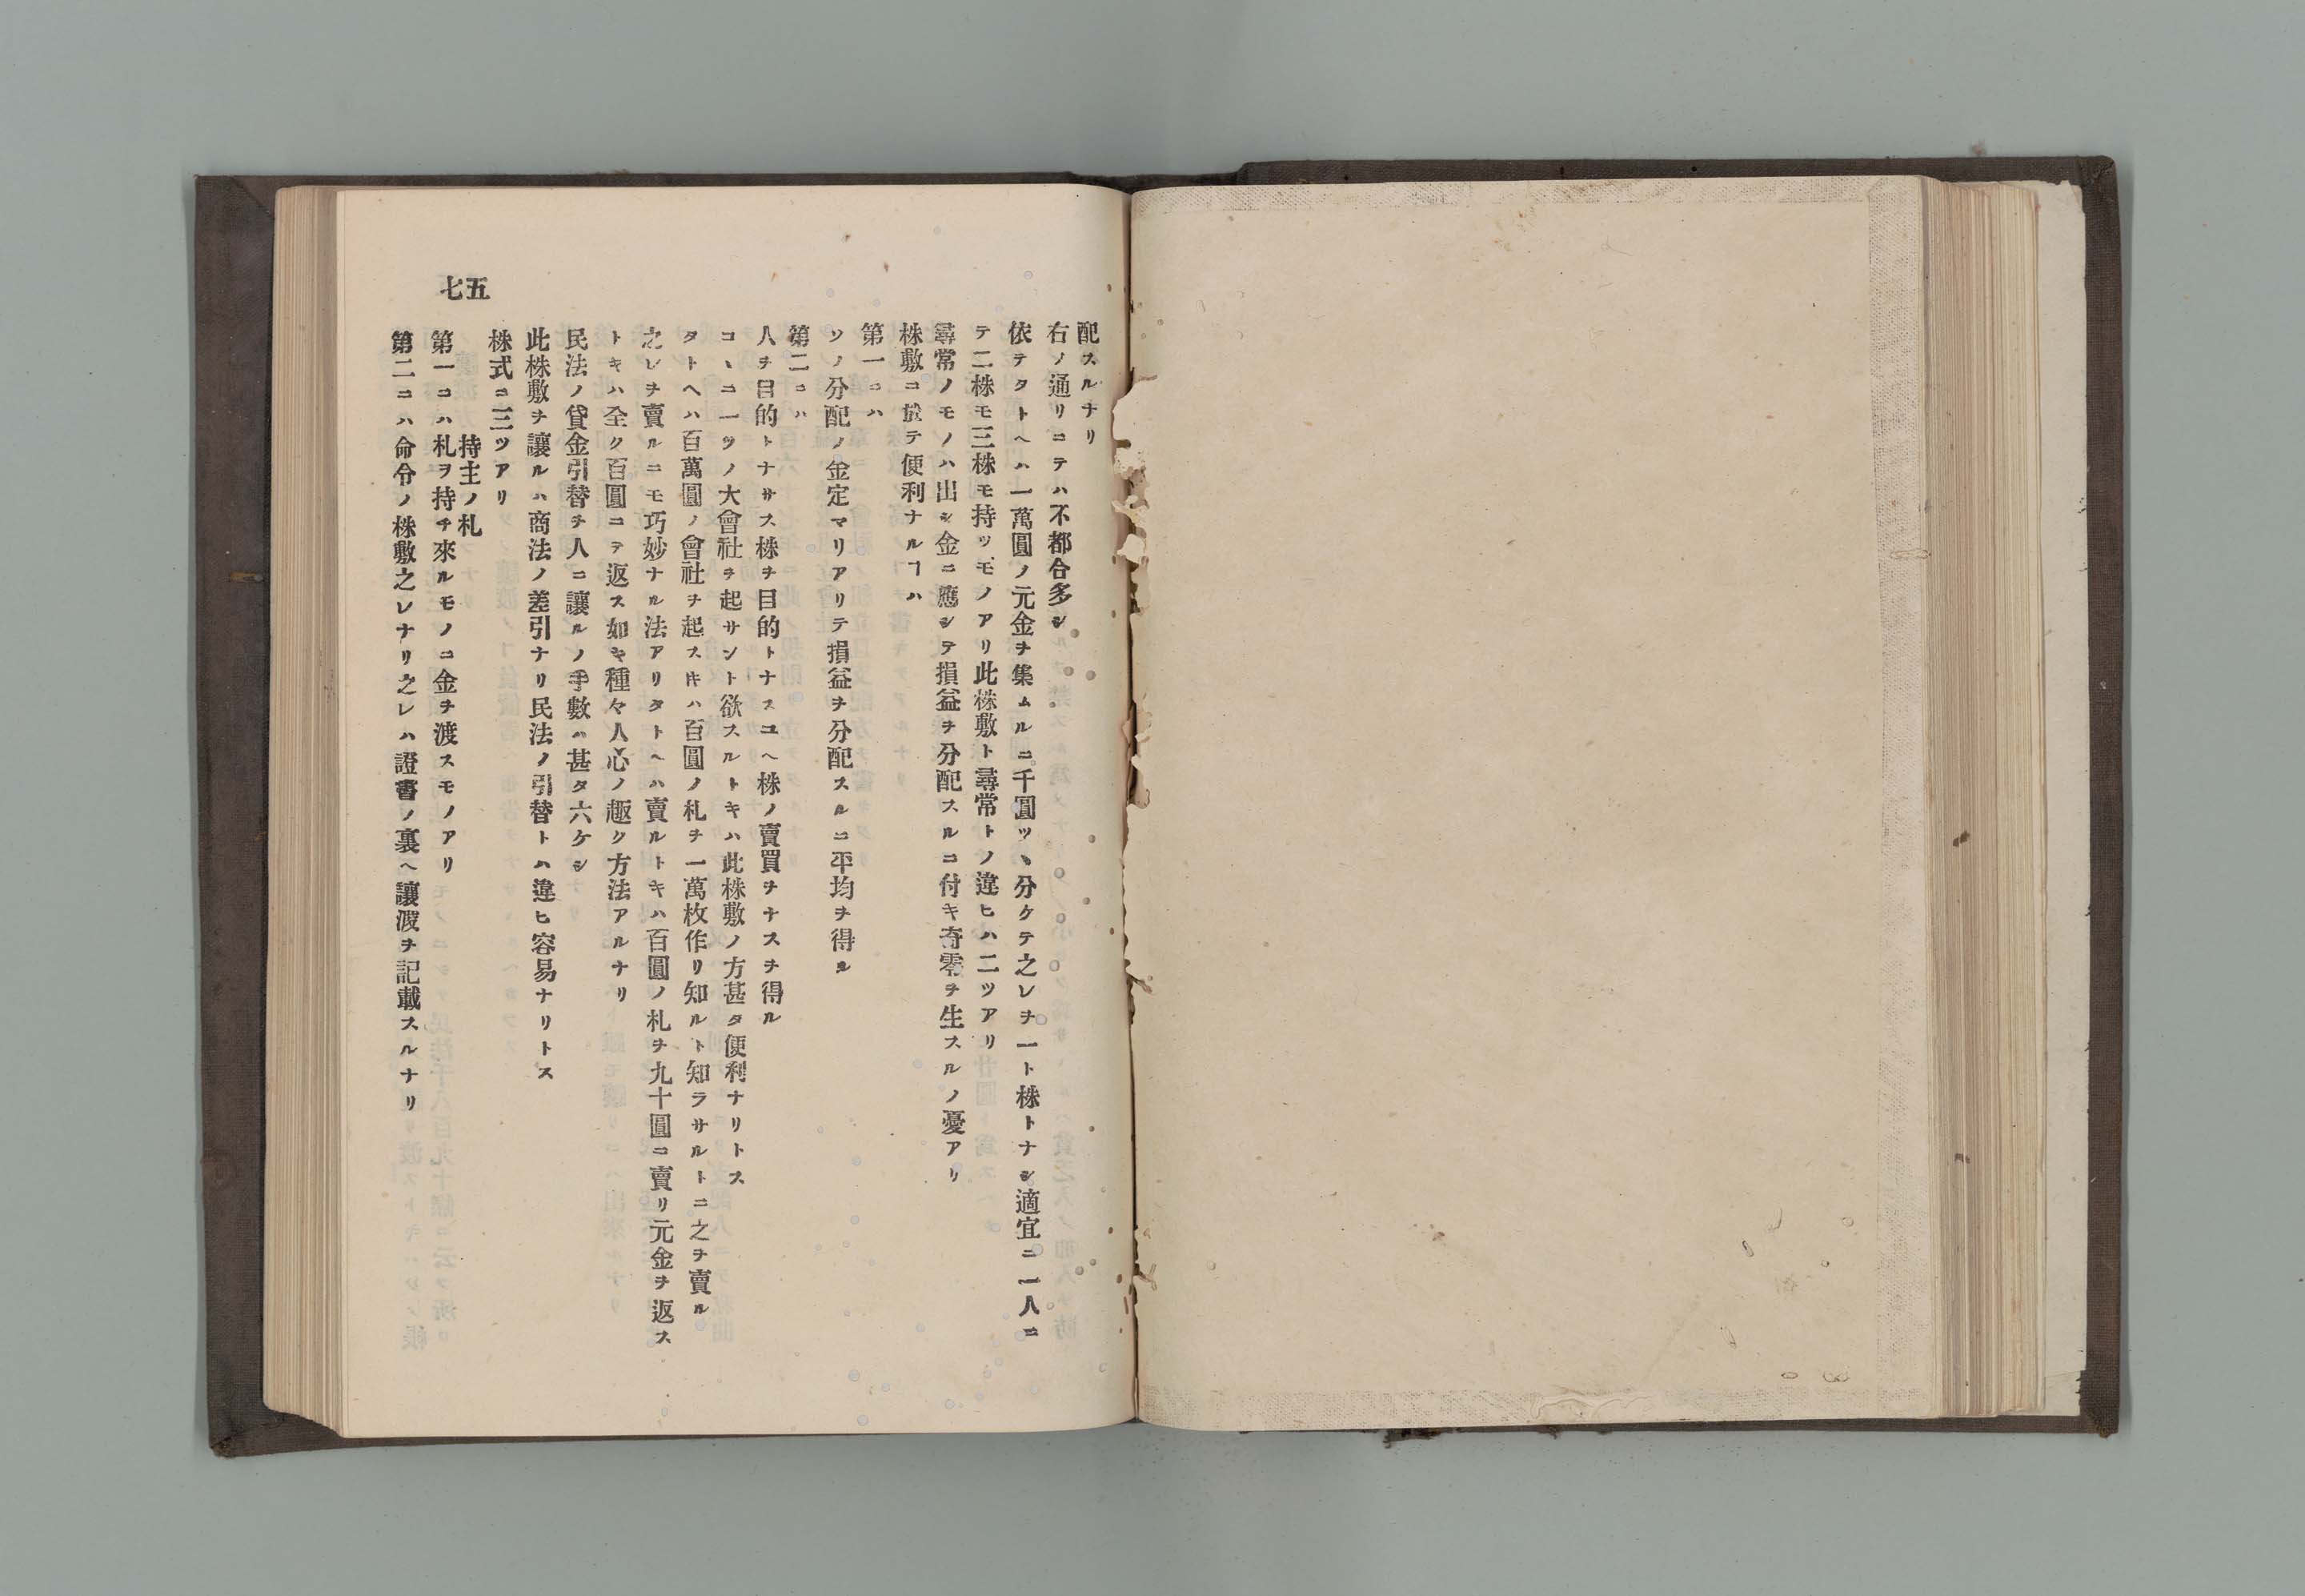 配スルナリ
右ノ通リニテハ不都合多シ
依テタトヘハ一萬圓ノ元金ヲ集ムルニ千圓ツヽ分ケテ之レヲ一ト株トナシ適宜ニ一人ニ
テ二株モ三株モ持ツモノアリ此株敷ト尋常トノ違ヒハ二ツアリ
尋常ノモノハ出シ金ニ應シテ損益ヲ分配スルニ付キ奇零ヲ生スルノ憂アリ
株敷ニ於テ便利ナルヿハ
第一ニハ
ソノ分配ノ金定マリアリテ損益ヲ分配スルニ平均ヲ得ル
第二ニハ
人ヲ目的トナサス株ヲ目的トナスユヘ株ノ賣買ヲナスヲ得ル
コヽニ一ツノ大會社ヲ起サント欲スルトキハ此株敷ノ方甚タ便利ナリトス
タトヘハ百萬圓ノ會社ヲ起スキハ百圓ノ札ヲ一萬枚作リ知ルト知ラサルトニ之ヲ賣ル
之レヲ賣ルニモ巧妙ナル法アリタトヘハ賣ルトキハ百圓ノ札ヲ九十圓ニ賣リ元金ヲ返ス
トキハ全ク百圓ニテ返ス如キ種々人心ノ趣ク方法アルナリ
民法ノ貸金引替ヲ人ニ讓ルノ手數ハ甚タ六ケシ
此株敷ヲ讓ルハ商法ノ差引ナリ民法ノ引替トハ違ヒ容易ナリトス
株式ニ三ツアリ
持主ノ札
第一ニハ札ヲ持チ來ルモノニ金ヲ渡スモノアリ
第二ニハ命令ノ株敷之レナリ之レハ證書ノ裏ヘ讓渡ヲ記載スルナリ
七五